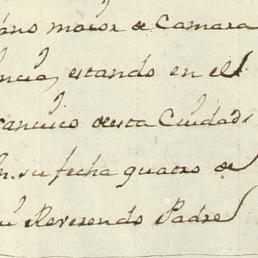 ano maior de Camara
encia, estando en el
rancisco de esta Ciudad
en su fecha quatro de
su Reverendo Padre